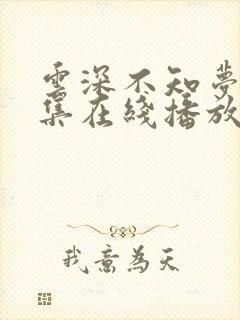 雲深不知夢
集在綫播放
我意為天